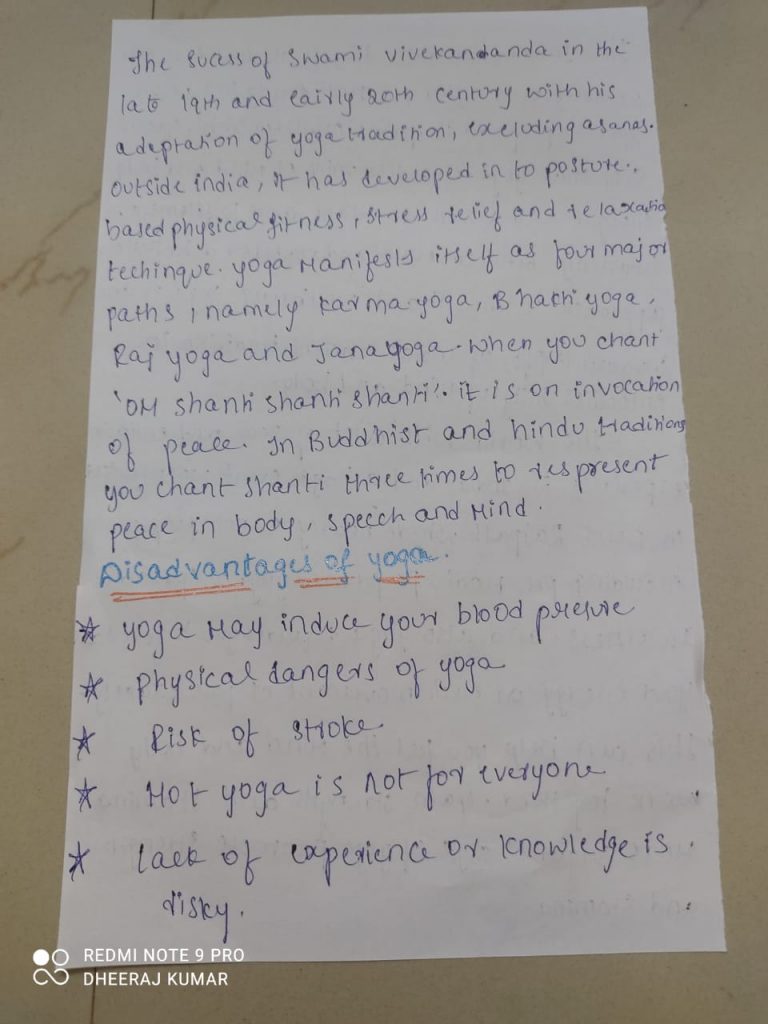 The sucess of Swami vivekandanda in the
late 19th and eairly 20th century with his
adeptation of yoga tradition, excluding asanas.
outside india, it has developed in to posture.
based physical fitness, stress relief and relaxatio
techinque. yoga Manifests itself as four major
paths, namely karma yoga, Bhakti yoga,
Raj yoga and Janayoga. when you chant
'OM shanti shanti shanti'. it is on invocation
of peace. In Buddhist and hindu traditions
you chant shanti three times to respresent
peace in body, speech and Mind.
Disadvantages of yoga.
☆ yoga May induce your blood presure
☆ physical dangers of yoga
☆ Risk of stroke
☆ Hot yoga is not for everyone
☆ lack of experience or knowledge is
risky.
REDMI NOTE 9 PRO
DHEERAJ KUMAR